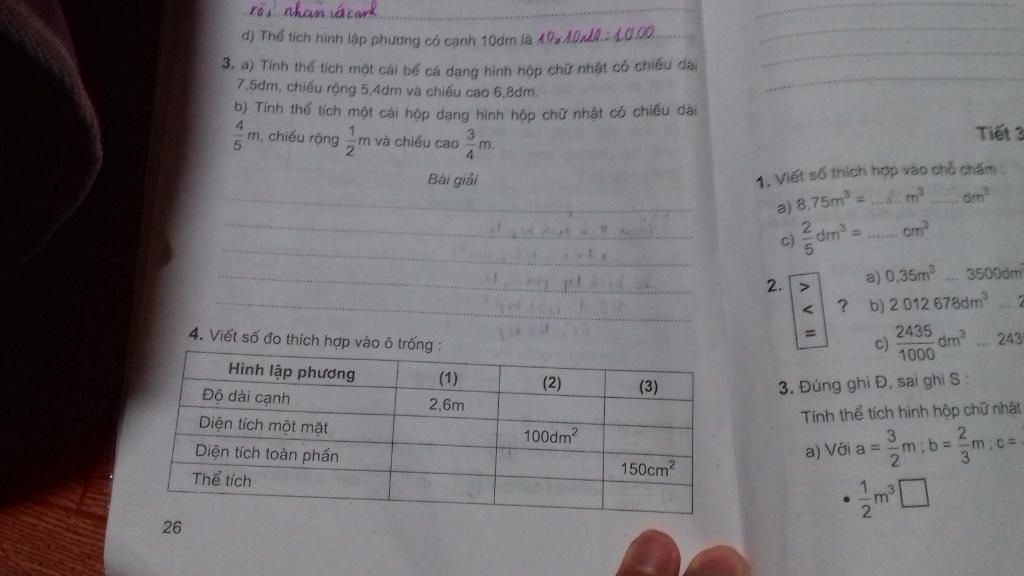 rồi nhân với cạnh
d) Thể tích hình lập phương có cạnh 10dm là 10x10x10=1000
3. a) Tính thể tích một cái bể cá dạng hình hộp chữ nhật có chiều dài
7,5dm, chiều rộng 5,4dm và chiều cao 6,8dm.
b) Tính thể tích một cái hộp dạng hình hộp chữ nhật có chiều dài
4/5 m, chiều rộng 1/2 m và chiều cao 3/4 m.
Bài giải
4. Viết số đo thích hợp vào ô trống :
Hình lập phương (1) (2) (3)
Độ dài cạnh 2,6m
Diện tích một mặt 100dm²
Diện tích toàn phần 150cm²
Thể tích
26
Tiết 3
1. Viết số thích hợp vào chỗ chấm :
a) 8,75m³ = ...... m³ ...... dm³
c) 2/5 dm³ = ....... cm³
2. > < = ?
a) 0,35m³ ... 3500dm³
b) 2 012 678dm³ ...
c) 2435/1000 dm³ ... 243
3. Đúng ghi Đ, sai ghi S :
Tính thể tích hình hộp chữ nhật
a) Với a = 3/2 m ; b = 2/3 m ; c =
• 1/2 m³ □